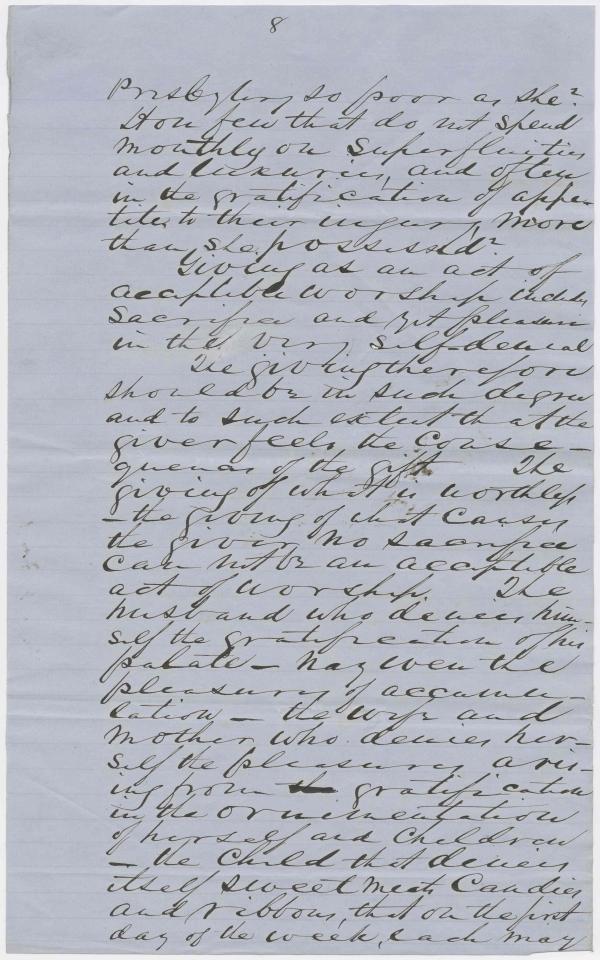 8
Presbytery so poor as she?
How few that do not spend
monthly on superfluities
and luxuries, and often
in the gratification of appe-
tites to their injury, more
than she possessed?
Giving as an act of
acceptible worship includes
sacrifice and yet pleasure
in the very self-denial
The giving therefore
should be in such degree
and to such extent that the
giver feels the conse-
quences of the gift The
giving of what is worthless
- the giving of what causes
the giver no sacrifice
can not be an acceptible
act of worship. The
husband who denies him-
self the gratification of his
palate - nay even the
pleasures of accumu-
lation - the wife and
mother who denies her-
self the pleasures aris-
ing from the gratification
in the ornimentation
of herself and children
- the child that denies
itself sweet meats candies
and ribbons, that on the first
day of the week, each may